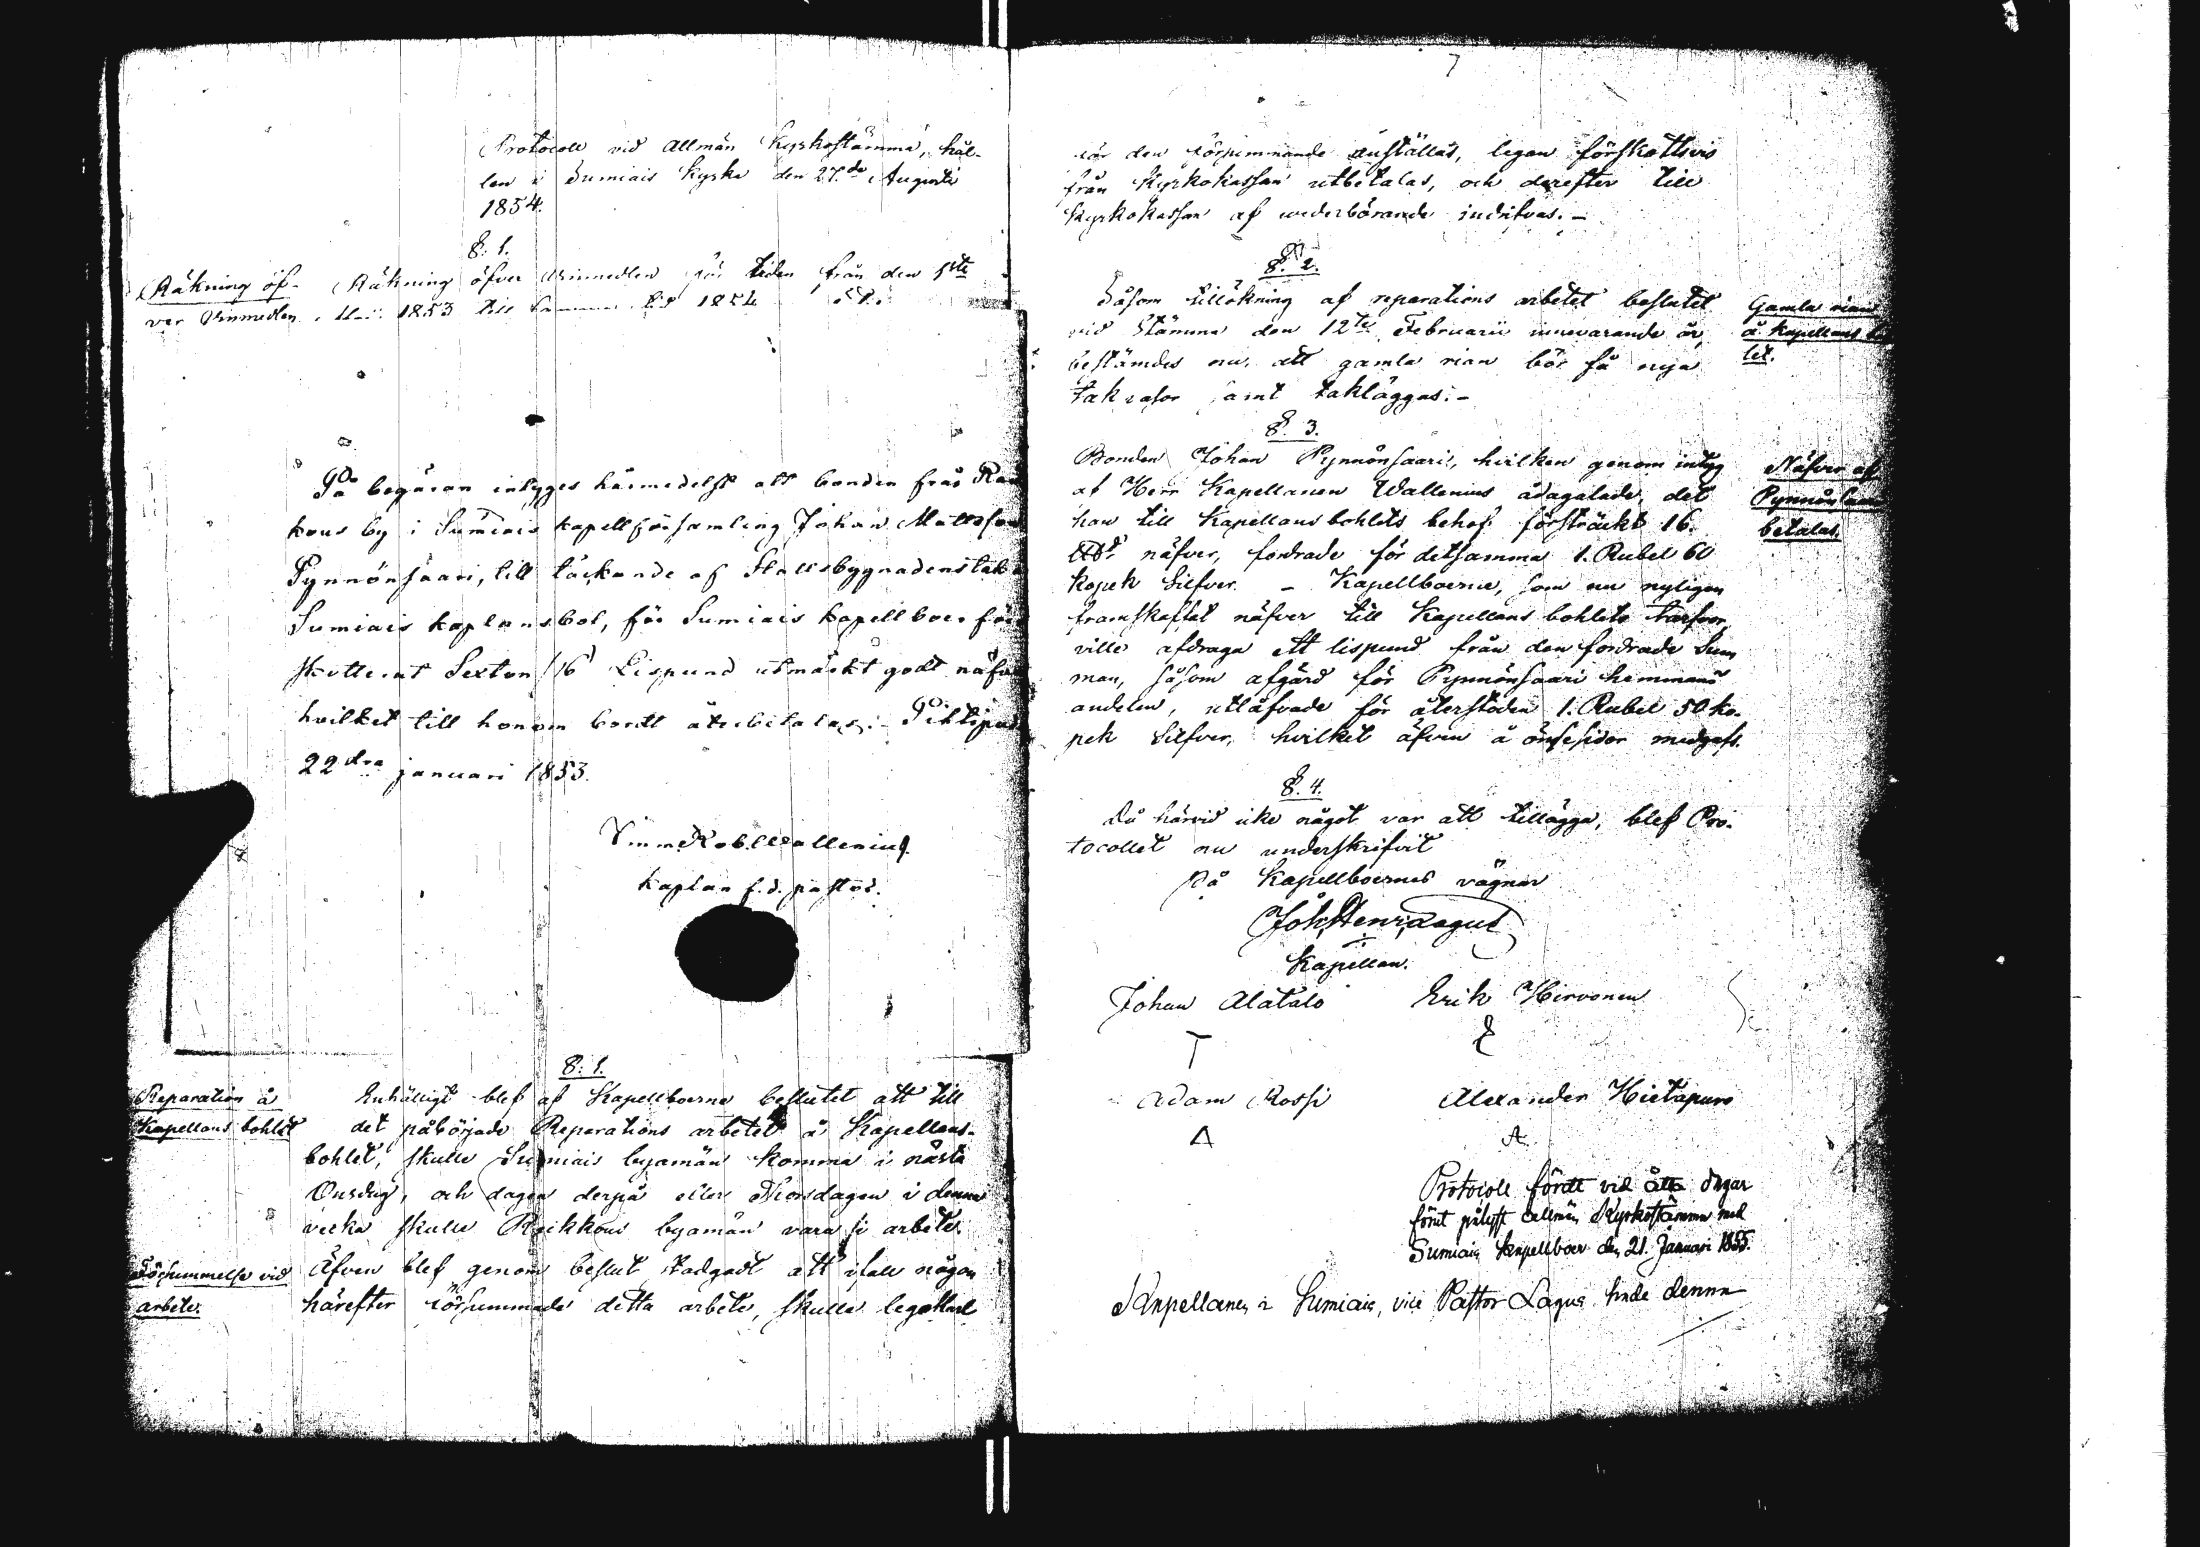 Protocoll vid Allmän Kyrkostämma, hål-
len i Sumiais Kyrka den 27.de Augusti
1854.
§. 1.
Räkning öf-
ver Vinmedlen.
Räkning öfver Vinmedlen för tiden från den 1sta
Maj 1853 till samma tid 1854
På begäran intygges härmedelst att bonden från Rai
kous by i Sumiais kapellförsamling Johan Mattsson
Pynnönsaari, till täckande af Stallsbyggnadens tak
Sumiais kaplansbol, för Sumiais kapellboer för
skotterat Sexton /16/ Lispund utmärkt godt näfver
hvilket till honom bordt återbetalas. Pihtipudas
22dra januari 1853.
Rob. Wallenius.
kaplan f.d. pastor.
§. 1.
Reparation å
Kapellans bohlet
Enhälligt blef af Kapellboerna beslutet att till
det påbörjade Reparations arbetet å Kapellans-
bohlet, skulle Sumiais byamän komma i nästa
Onsdag, och dagen derpå eller Thorsdagen i denna
vecka skulle Raikkous byamän vara i arbete.
Försummelse vid
arbete.
Äfven blef genom beslut stadgadt att ifall någon
härefter försummade detta arbete, skulle legokarl
7
för den försummande anställas, legan förskottsvis
från Kyrkokassan utbetalas, och derefter till
Kyrkokassan af wederbörande indrifvas. -
§. 2.
Såsom tillökning af reparations arbetet beslutet
vid Stämma den 12te Februarii innevarande år,
bestämdes nu att gamla rian bör få nya
takrafor samt takläggas. -
Gamla rian
å Kapellans bo
let.
§. 3.
Bonden Johan Pynnönsaari, hvilken genom intyg
af Herr Kapellanen Wallenius ådagalade, det
han till Kapellans bohlets behof försträckt 16.
näfver, fordrade för detsamma 1. Rubel 60
Kopek Silfver. - Kapellboerne, som nu nyligen
framskaffat näfver till Kapellans bohlets tarfvor,
ville afdraga ett lispund från den fordrade Sum
man, såsom afgärd för Pynnönsaari hemmans
andelen, utläfvade för återstoden 1. Rubel 50 ko-
pek Silfver, hvilket äfven å ömsesidor medgafs.
Näfver af
Pynnönsaari
betalas.
§. 4.
Då härvid icke något var att tillägga, blef Pro-
tocollet nu underskrifvit
På Kapellboernes vägnar
Joh. Henr. Lagus
Kapellan.
Johan Alatalo Erik Hirvonen
Adam Rossi Alexander Hietapuro
A
Protocoll fördt vid åtta dagar
förut pålyst allmän Kyrkostämma med
Sumiais Kapellboer den 21. Januari 1855.
Kapellanen i Sumiais, vice Pastor Lagus hade denna